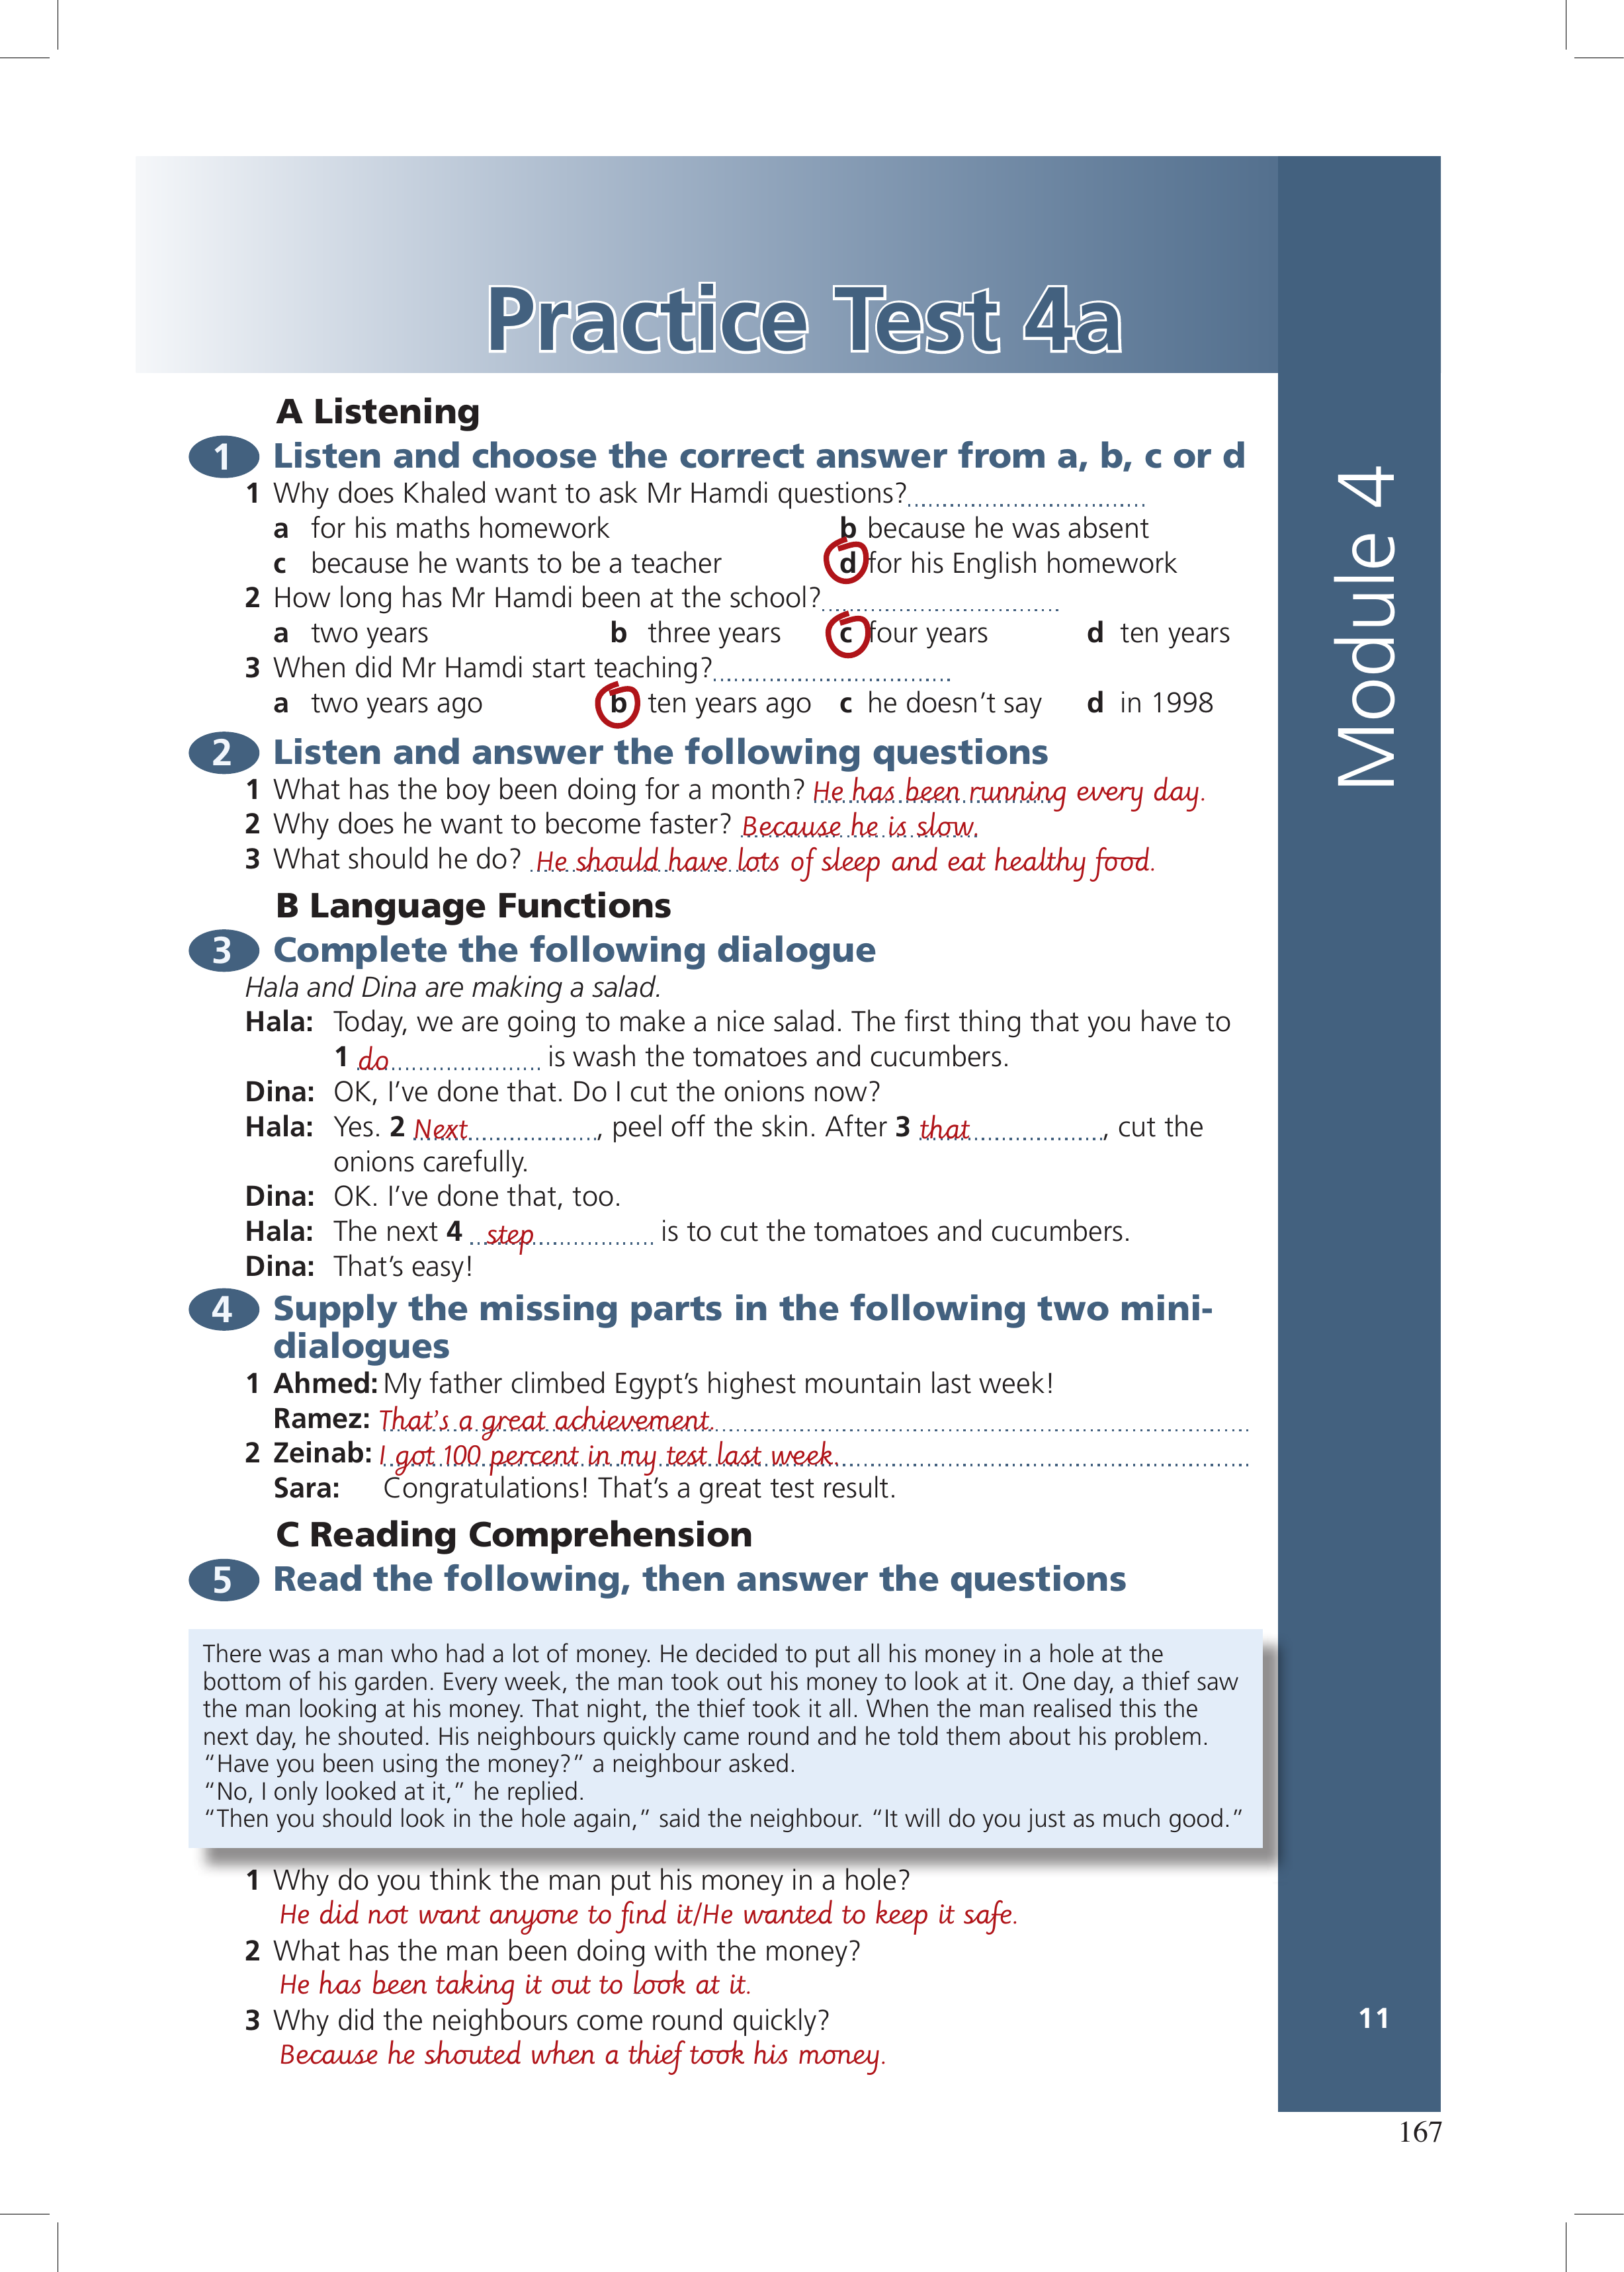 Practice Test 4a
Module 4
A Listening
1 Listen and choose the correct answer from a, b, c or d
1 Why does Khaled want to ask Mr Hamdi questions?
a for his maths homework b because he was absent
c because he wants to be a teacher d for his English homework
2 How long has Mr Hamdi been at the school?
a two years b three years c four years d ten years
3 When did Mr Hamdi start teaching?
a two years ago b ten years ago c he doesn't say d in 1998
2 Listen and answer the following questions
1 What has the boy been doing for a month? He has been running every day.
2 Why does he want to become faster? Because he is slow.
3 What should he do? He should have lots of sleep and eat healthy food.
B Language Functions
3 Complete the following dialogue
Hala and Dina are making a salad.
Hala: Today, we are going to make a nice salad. The first thing that you have to
1 do is wash the tomatoes and cucumbers.
Dina: OK, I've done that. Do I cut the onions now?
Hala: Yes. 2 Next, peel off the skin. After 3 that, cut the
onions carefully.
Dina: OK. I've done that, too.
Hala: The next 4 step is to cut the tomatoes and cucumbers.
Dina: That's easy!
4 Supply the missing parts in the following two mini-
dialogues
1 Ahmed: My father climbed Egypt's highest mountain last week!
Ramez: That's a great achievement.
2 Zeinab: I got 100 percent in my test last week.
Sara: Congratulations! That's a great test result.
C Reading Comprehension
5 Read the following, then answer the questions
There was a man who had a lot of money. He decided to put all his money in a hole at the
bottom of his garden. Every week, the man took out his money to look at it. One day, a thief saw
the man looking at his money. That night, the thief took it all. When the man realised this the
next day, he shouted. His neighbours quickly came round and he told them about his problem.
“Have you been using the money?” a neighbour asked.
“No, I only looked at it,” he replied.
“Then you should look in the hole again,” said the neighbour. “It will do you just as much good.”
1 Why do you think the man put his money in a hole?
He did not want anyone to find it/He wanted to keep it safe.
2 What has the man been doing with the money?
He has been taking it out to look at it.
3 Why did the neighbours come round quickly?
Because he shouted when a thief took his money.
11
167